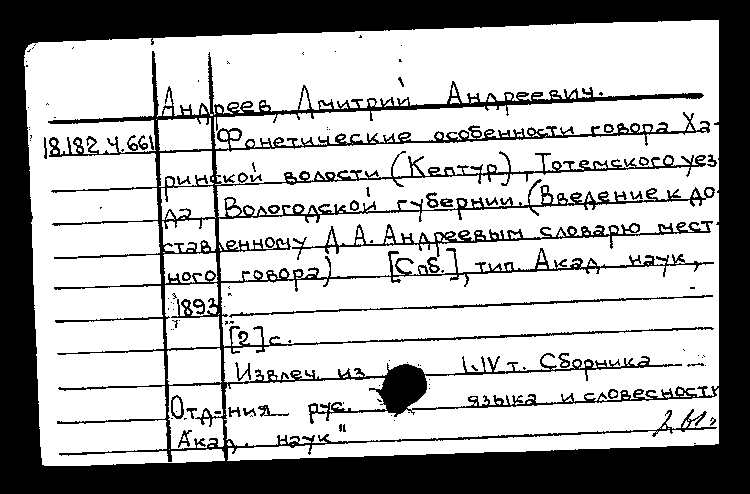 Андреев, Дмитрий Андреевич.
18.182.4.661 Фонетические особенности говора Ха-
ринской волости (Кептур), Тотемского уез-
да, Вологодской губернии. (Введение к до-
ставленному Д. А. Андреевым словарю мест-
ного говора) [Спб.], тип. Акад. наук,
1893.
[2] с.
"Извлеч. из LIV т. Сборника
Отд-ния рус. языка и словесности
Акад. наук"